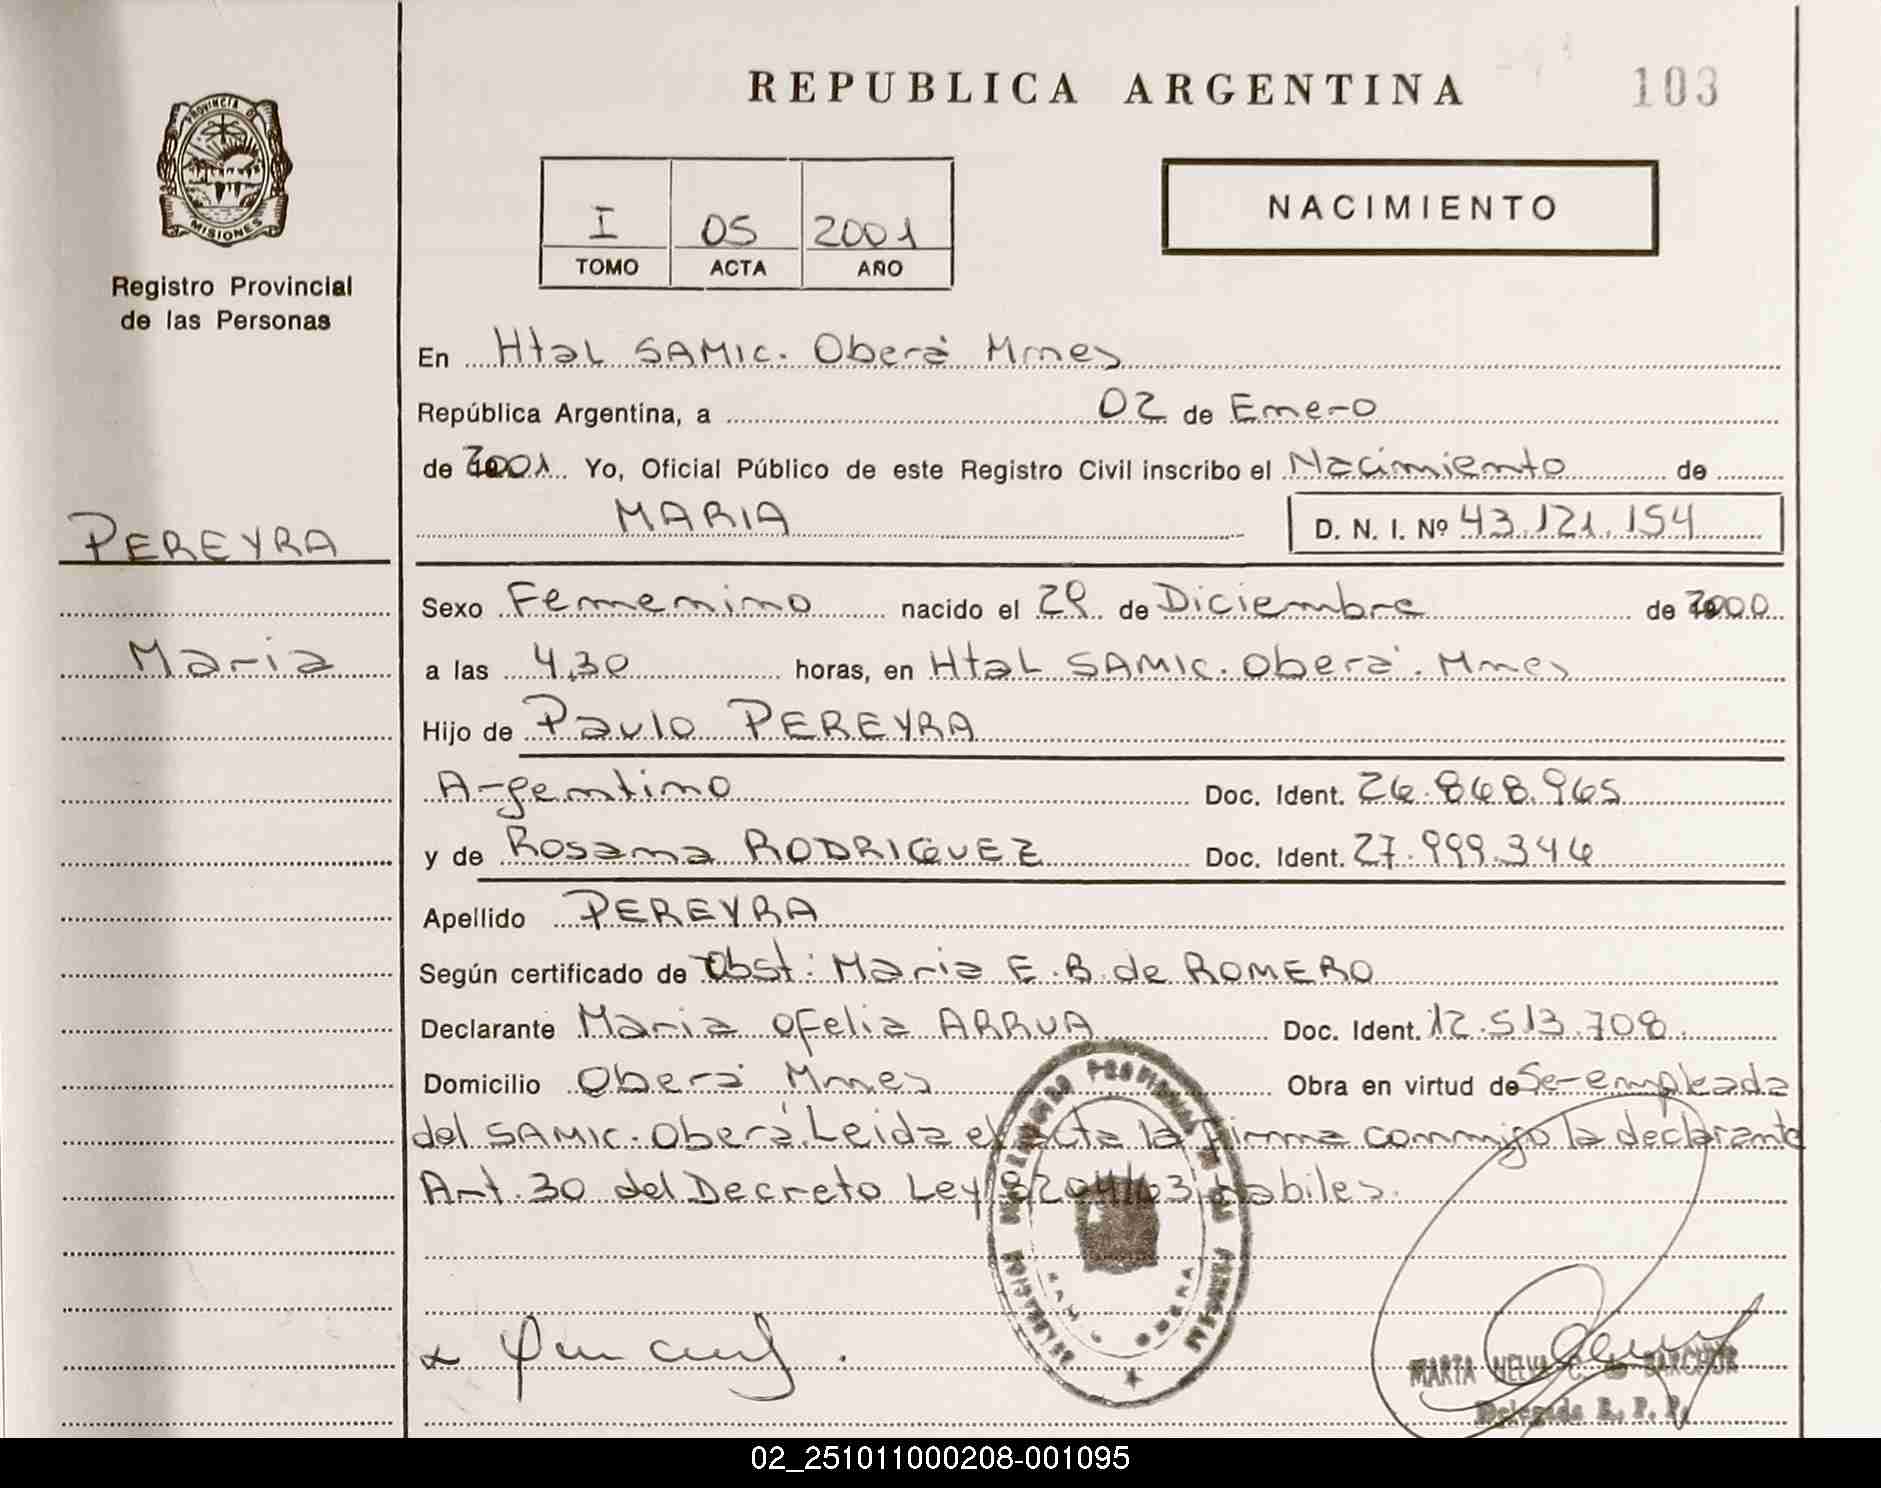 REPUBLICA ARGENTINA
103
PROVINCIA D
MISIONES
Registro Provincial
de las Personas
I 05 2001
TOMO ACTA AÑO
NACIMIENTO
En Htal SAMIC. Oberá Mnes
República Argentina, a 02 de Enero
de 2001 Yo, Oficial Público de este Registro Civil inscribo el Nacimiento de
MARIA D. N. I. Nº 43.121.154
PEREYRA
Maria
Sexo Femenino nacido el 29 de Diciembre de 2000
a las 4,30 horas, en Htal SAMIC. Oberá. Mnes
Hijo de Paulo PEREYRA
Argentino Doc. Ident. 26.868.965
y de Rosana RODRIGUEZ Doc. Ident. 27.999.346
Apellido PEREYRA
Según certificado de Obst: Maria E. B. de ROMERO
Declarante Maria Ofelia ARRUA Doc. Ident. 12.513.708.
Domicilio Oberá Mnes Obra en virtud de Ser empleada
del SAMIC. Oberá. Leida el acta la firma conmigo la declarante
Art. 30 del Decreto Ley 8204/63 habiles.
MARTA NELVA C. de BARCHUK
Delegada R. P. P.
02_251011000208-001095